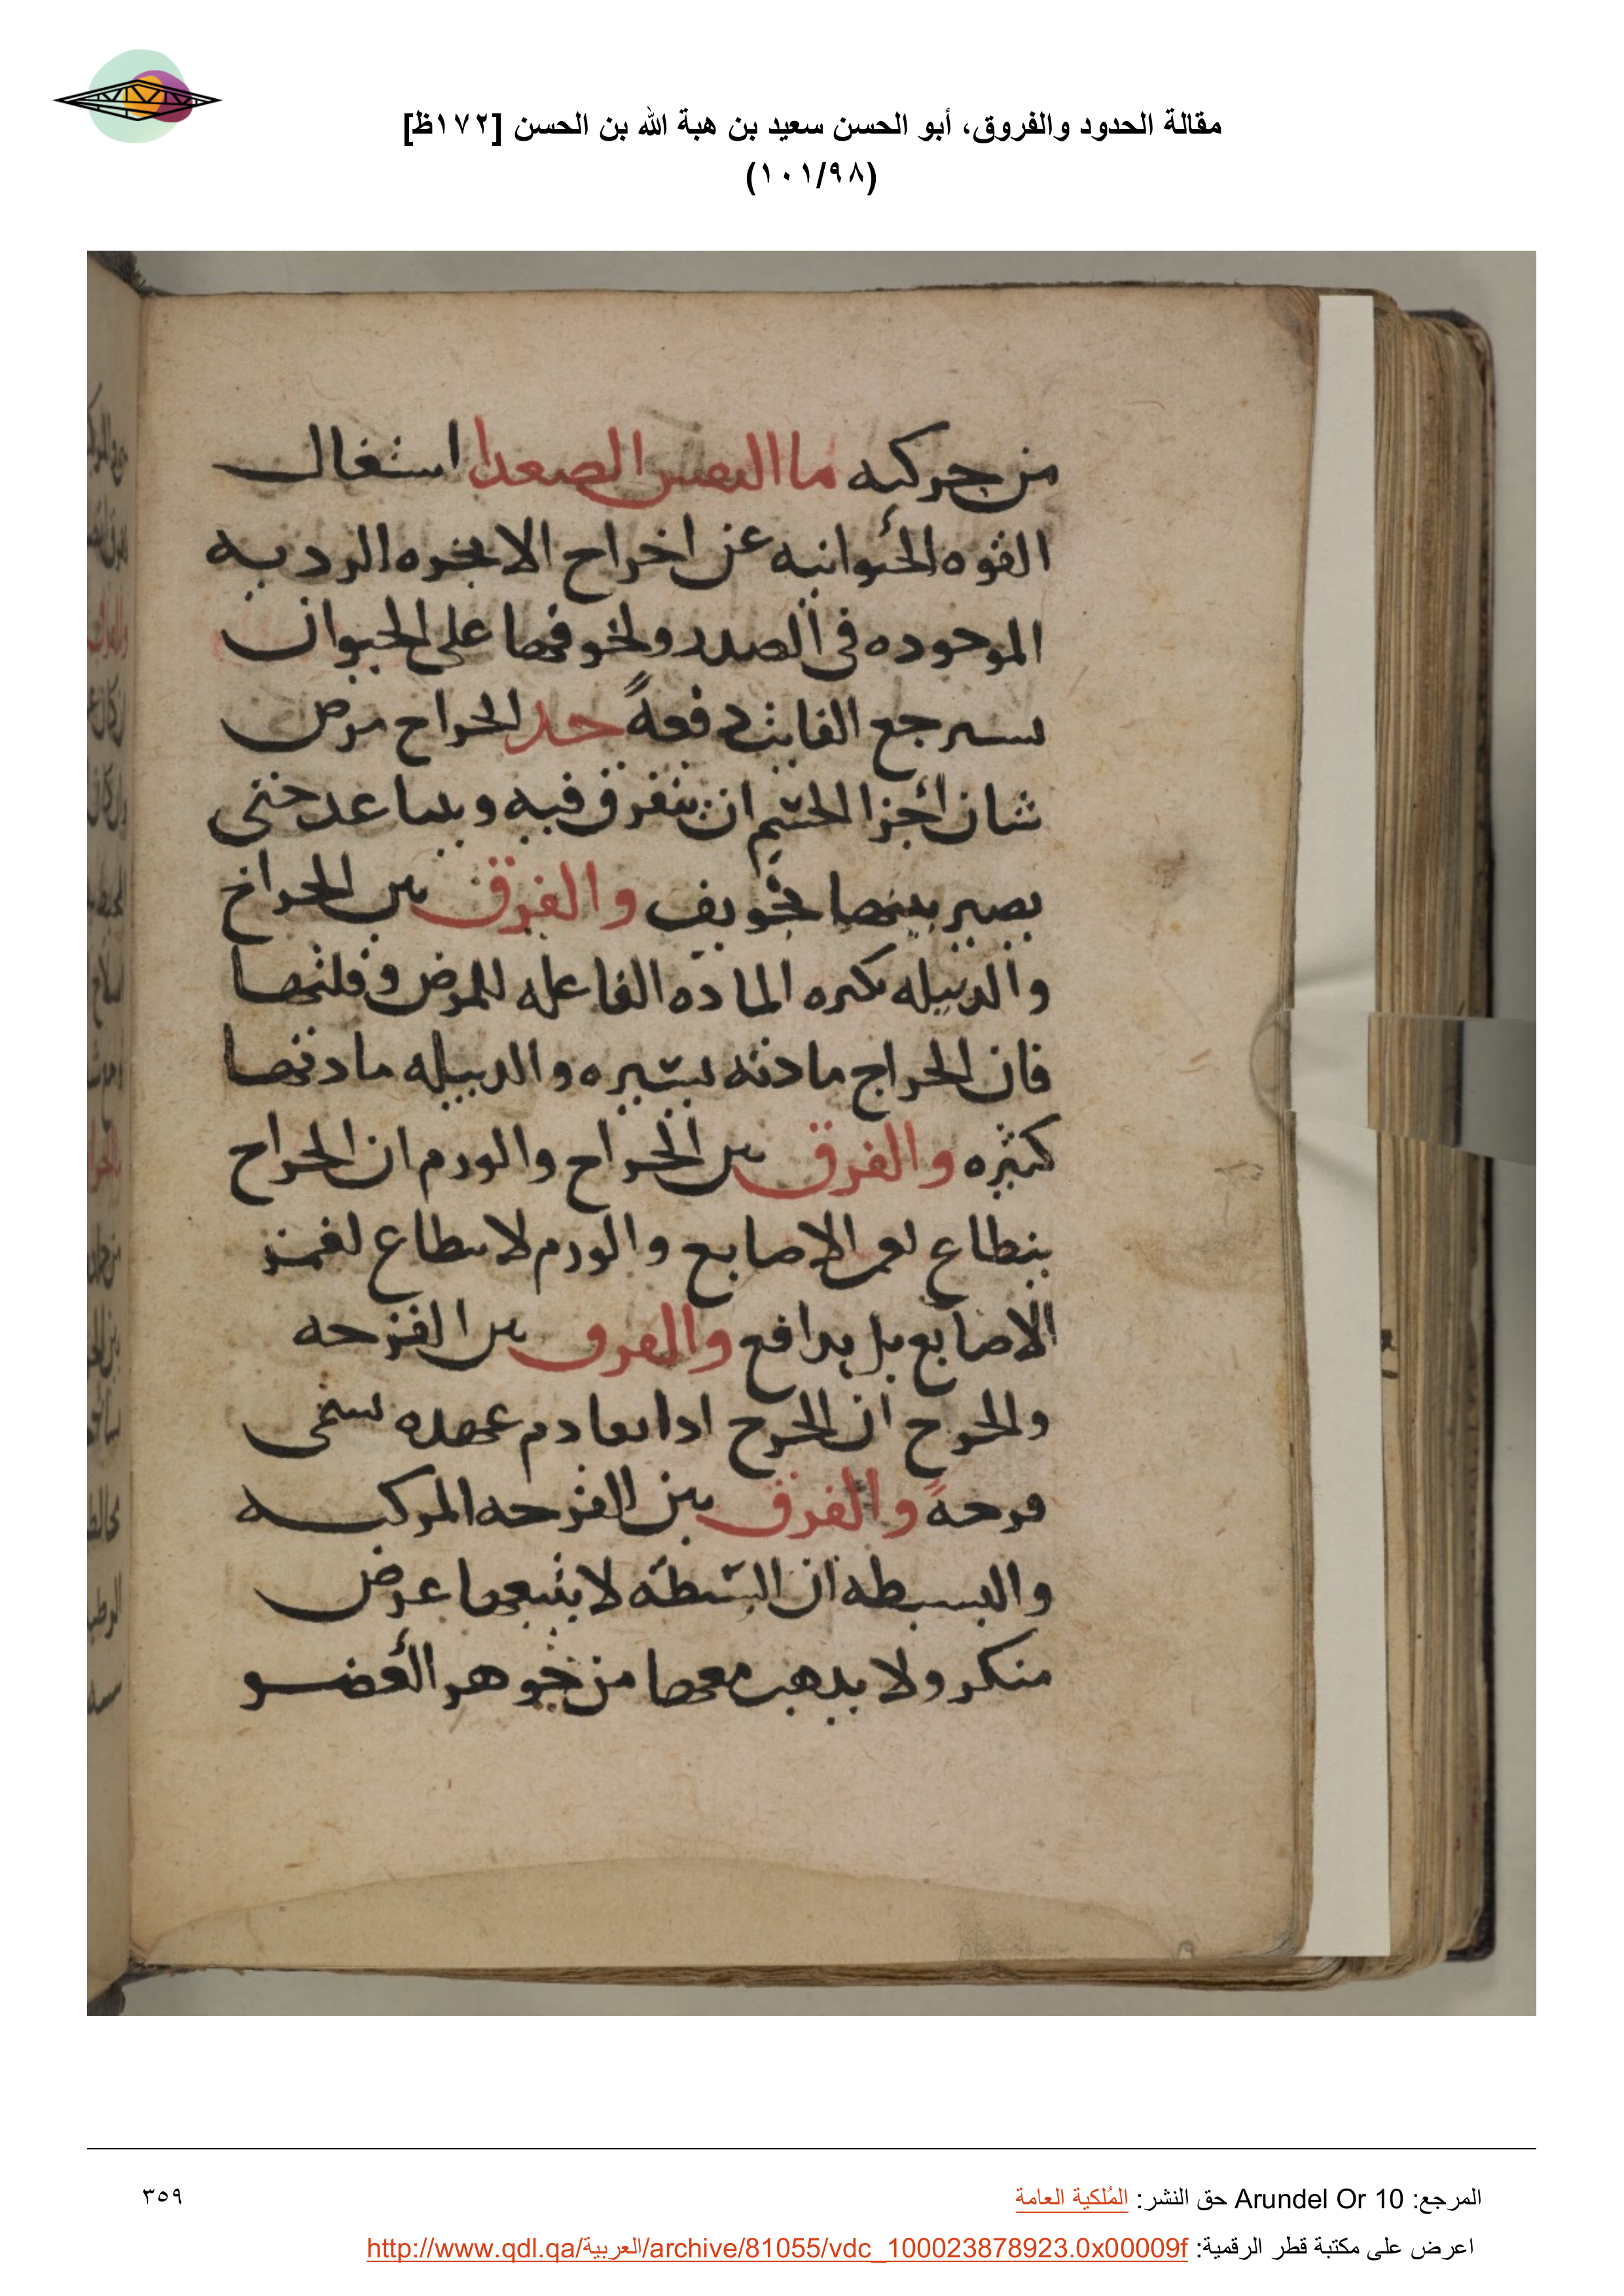 مقالة الحدود والفروق، أبو الحسن سعيد بن هبة الله بن الحسن [١٧٢ظ]
(١٠١/٩٨)
من حركيه ما النفس الصعدا اشتغال
القوه الحيوانيه عن اخراج الابخره الرديه
الموجوده في الصدر ولخوفها على الحيوان
سترجع الفايت دفعةً حد الخراج مرض
شان اجزا الجسم ان يتفرق فيه ويتباعد حتى
يصير بينها تجويف والفرق بين الخراج
والدبيله بكثره الماده الفاعله للمرض وقلتها
فان الخراج مادته يسيره والدبيله مادتها
كثيره والفرق بين الخراج والورم ان الخراج
ينطاع لغمز الاصابع والورم لا ينطاع لغمز
الاصابع بل يدافع والفرق بين القرحه
والجرح ان الجرح اذا تقادم عهده سمي
قرحةً والفرق بين القرحه المركبه
والبسيطه ان البسيطه لا يتبعها عرض
منكر ولا يذهب معها من جوهر العضو
المرجع: Arundel Or 10 حق النشر: المُلكية العامة
٣٥٩
اعرض على مكتبة قطر الرقمية: http://www.qdl.qa/العربية/archive/81055/vdc_100023878923.0x00009f